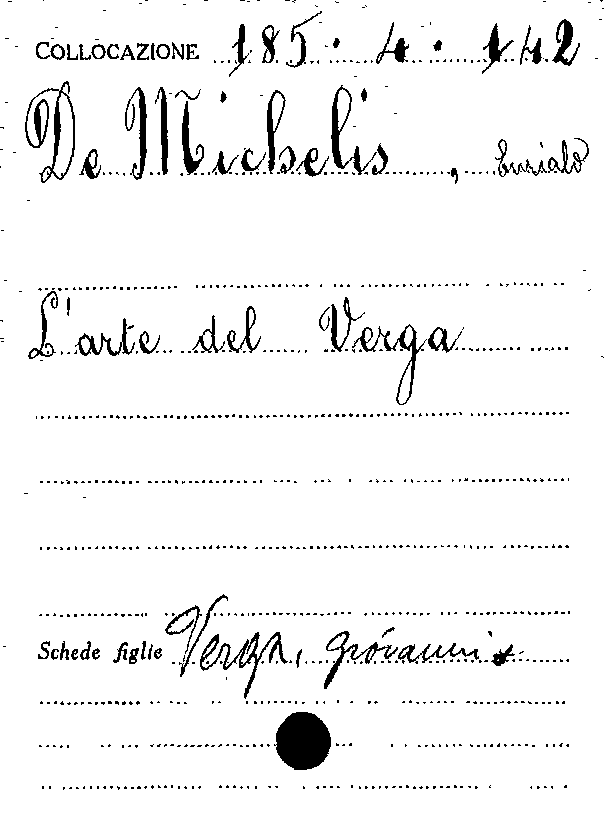 COLLOCAZIONE 185. 4. 142
De Michelis, Eurialo
L'arte del Verga
Schede figlie Verga, Giovanni